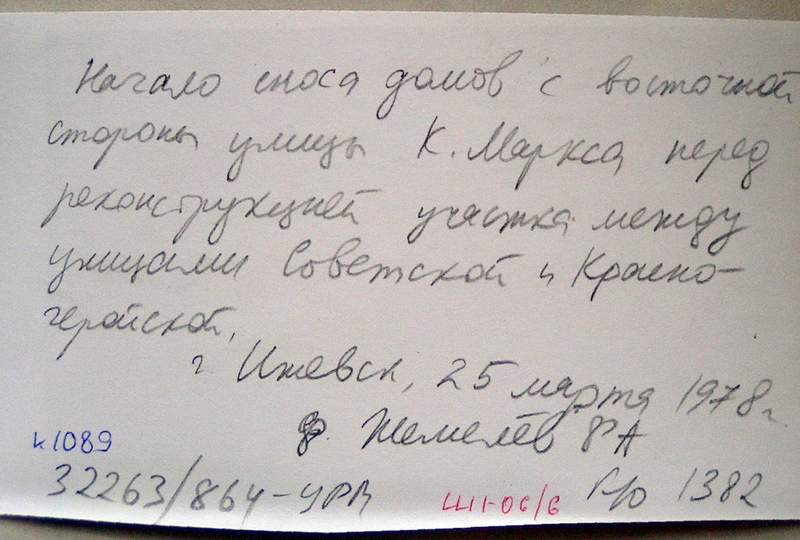 Начало сноса домов с восточной
стороны улицы К. Маркса перед
реконструкцией участка между
улицами Советской и Красно-
геройской.
г. Ижевск, 25 марта 1978 г.
ф. Жемелёв
к1089
32263/864-УРМ Ш1-06/6 1382